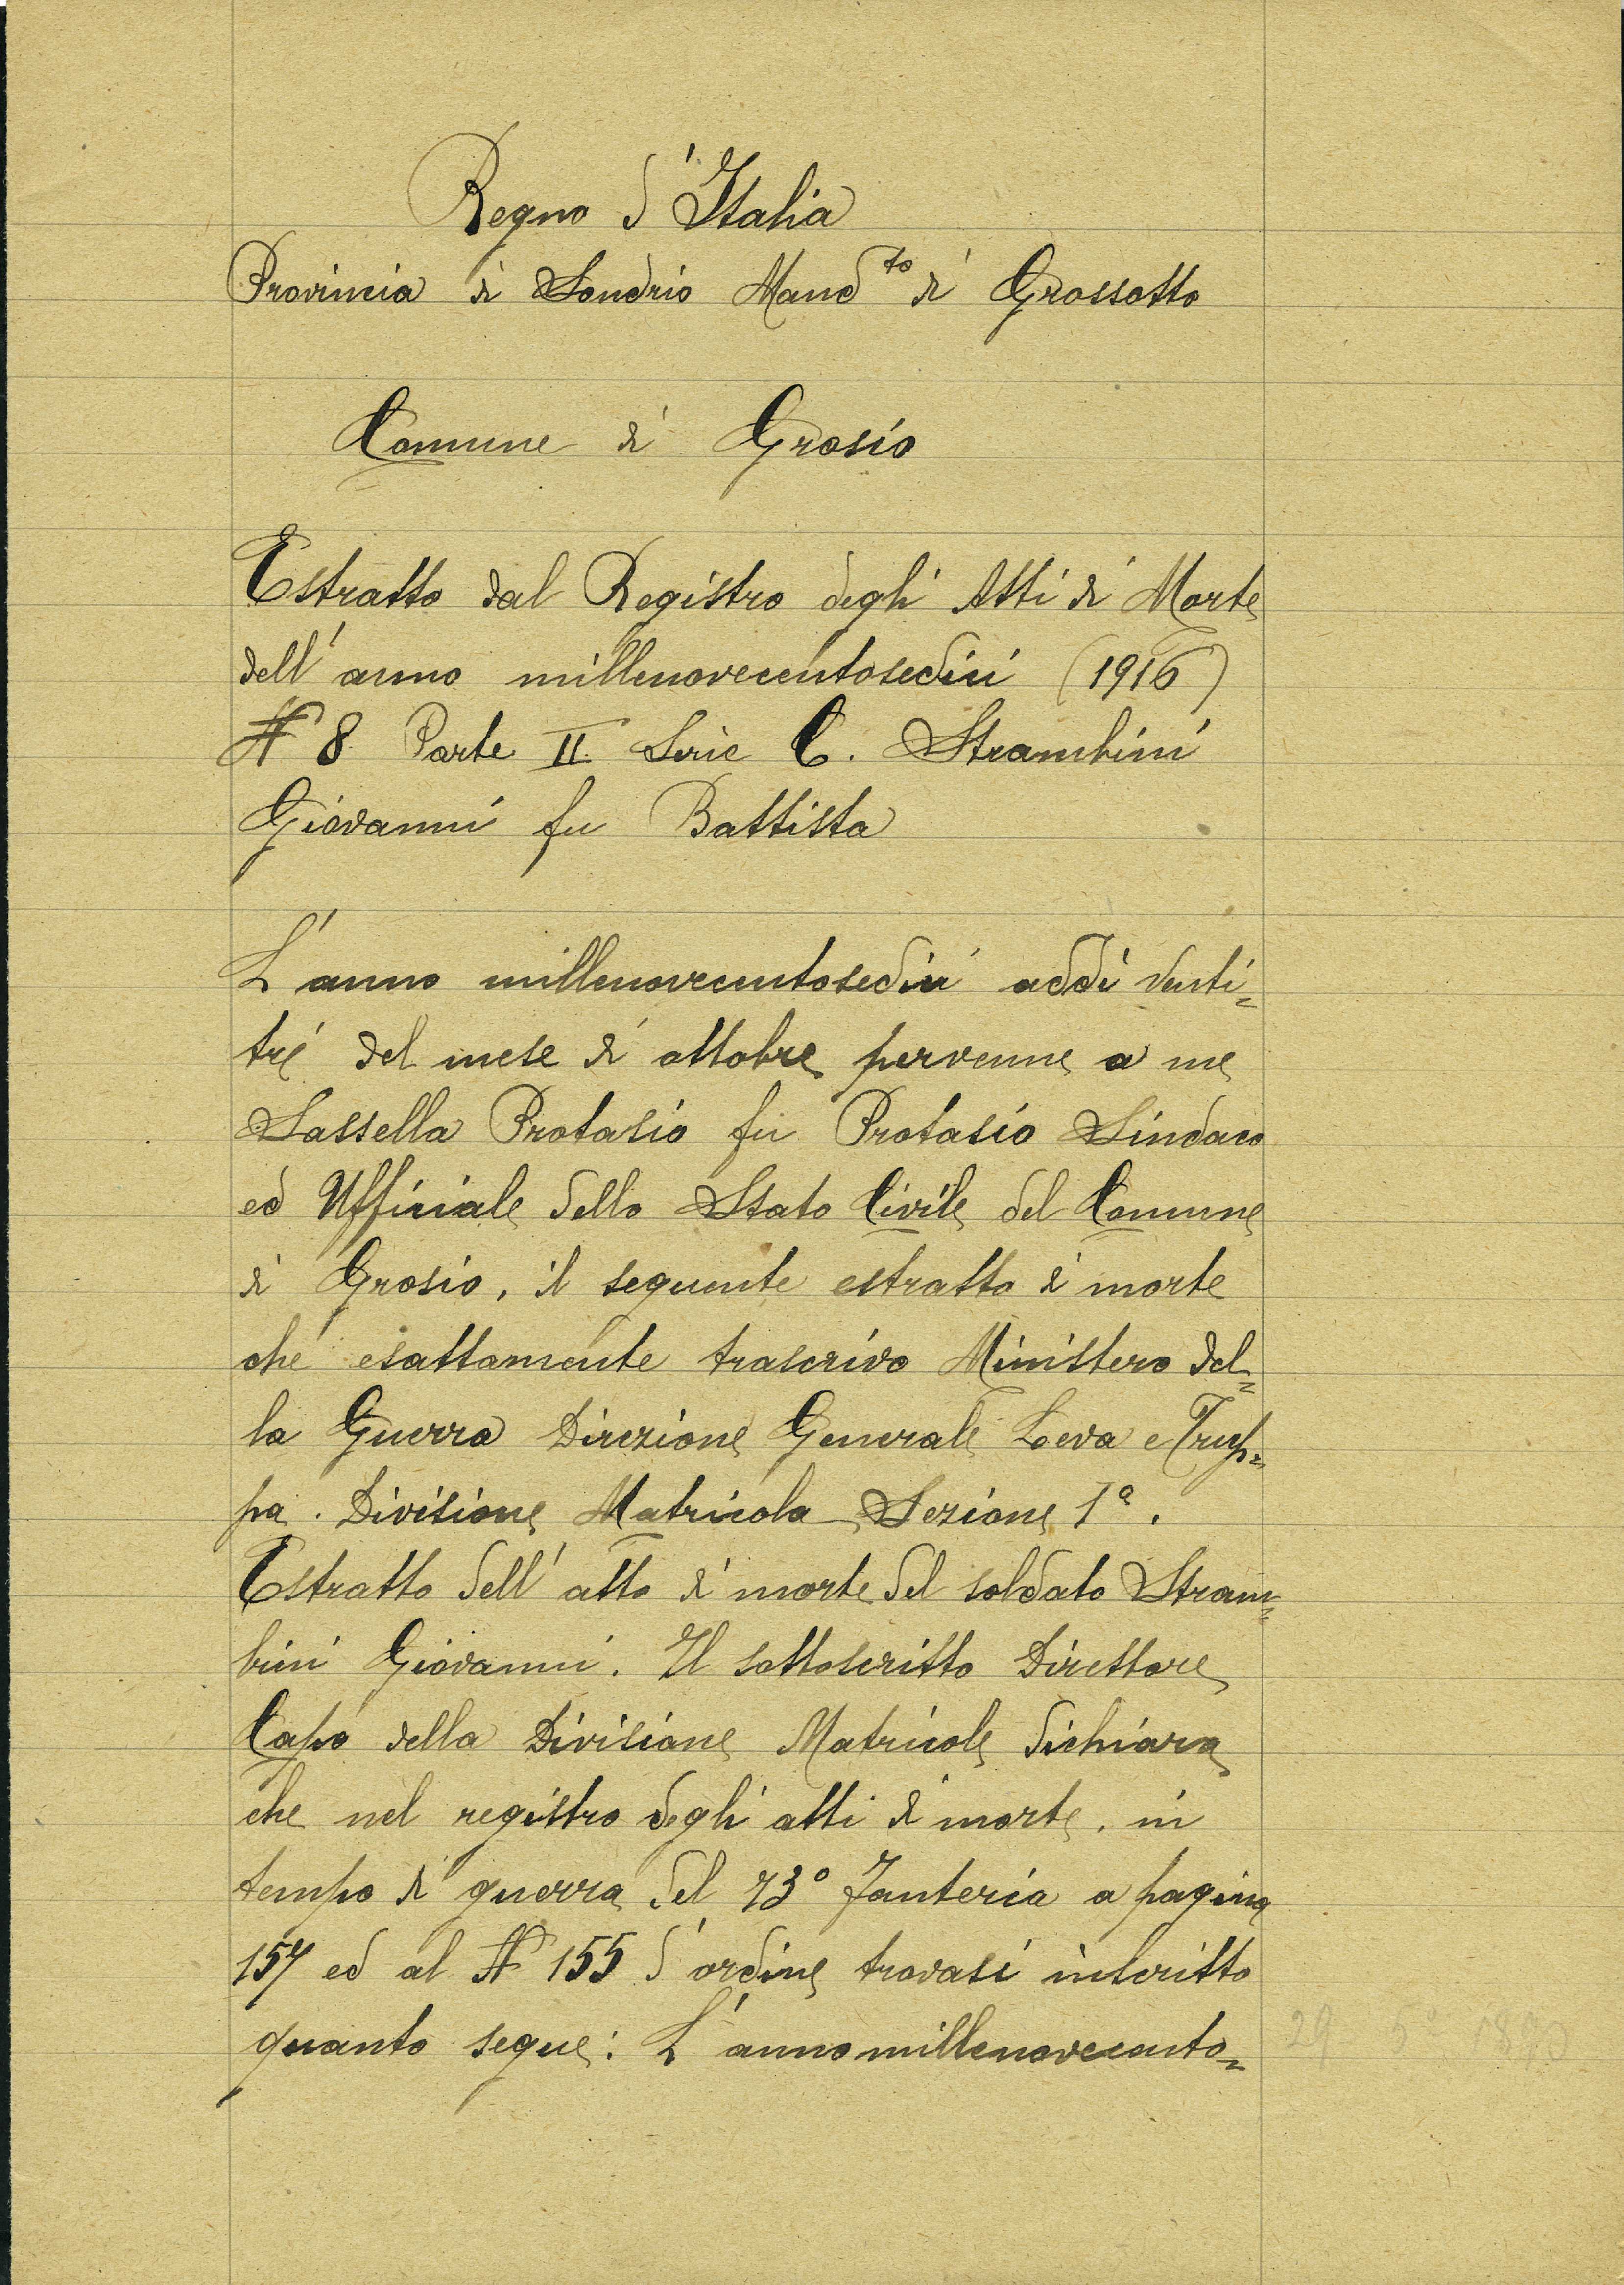 Regno d'Italia
Provincia di Sondrio Mand.to di Grossotto
Comune di Grosio
Estratto dal Registro degli Atti di Morte
dell'anno millenovecentosedici (1916)
N 8 Parte II Serie C. Strambini
Giovanni fu Battista
L'anno millenovecentosedici addì venti=
tré del mese di ottobre pervenne a me
Sassella Protasio fu Protasio Sindaco
ed Ufficiale dello Stato Civile del Comune
di Grosio, il seguente estratto di morte
che esattamente trascrivo Ministero del=
la Guerra Direzione Generale Leva e Trup=
pa. Divisione Matricola Sezione 1ª.
Estratto dell'atto di morte del soldato Stram=
bini Giovanni. Il sottoscritto Direttore
Capo della Divisione Matricole dichiara
che nel registro degli atti di morte, in
tempo di guerra del 73° Fanteria a pagina
157 ed al N 155 d'ordine trovasi inscritto
quanto segue: L'anno millenovecento=
29 5° 1890